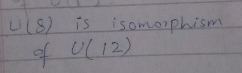 U(8) is isomorphism
of U(12)